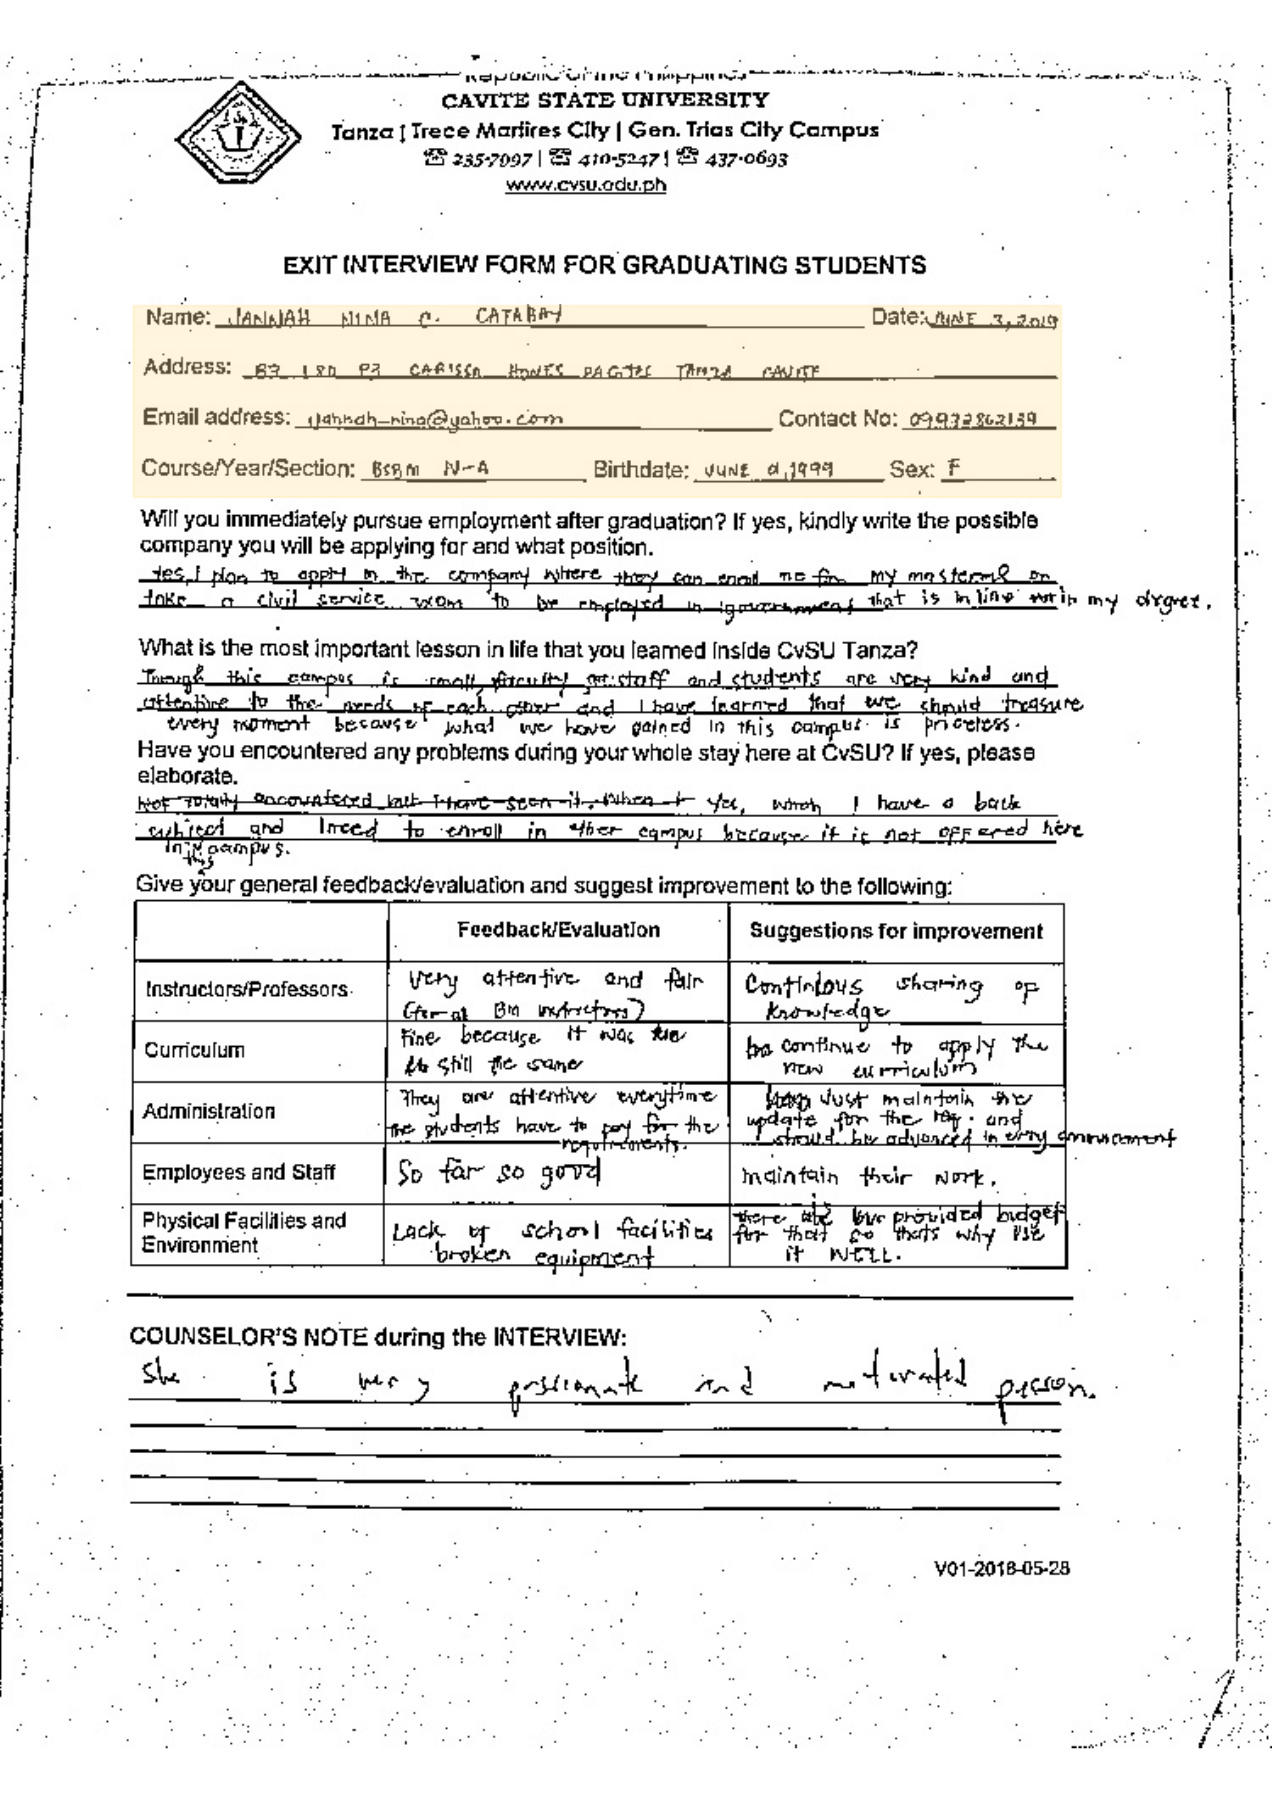 Republic of the Philippines
CAVITE STATE UNIVERSITY
Tanza | Trece Martires City | Gen. Trias City Campus
☎ 235-7997 | ☎ 410-5247 | ☎ 437-0693
www.cvsu.edu.ph
EXIT INTERVIEW FORM FOR GRADUATING STUDENTS
Name: JANNAH NINA C. CATABAY Date: JUNE 3, 2019
Address: B7 L20 P3 CARISSA HOMES TANZA CAVITE
Email address: jannah_nina@yahoo.com Contact No: 09932862139
Course/Year/Section: BSBM N-A Birthdate: JUNE 9, 1999 Sex: F
Will you immediately pursue employment after graduation? If yes, kindly write the possible
company you will be applying for and what position.
Yes, I plan to apply in the company where they can enroll me for my masteral or
take a civil service exam to be employed in government that is in line with my degree.
What is the most important lesson in life that you learned inside CvSU Tanza?
Though this campus is small, faculty staff and students are very kind and
attentive to the needs of each other and I have learned that we should treasure
every moment because what we have gained in this campus is priceless.
Have you encountered any problems during your whole stay here at CvSU? If yes, please
elaborate.
Not totally encountered but I have seen it. When I Yes, when I have a back
subject and I need to enroll in other campus because it is not offered here
in this campus.
Give your general feedback/evaluation and suggest improvement to the following:
Feedback/Evaluation Suggestions for improvement
Instructors/Professors
Very attentive and fair
(for all BM instructors)
Continious sharing of
knowledge
Curriculum
Fine because it was
still the same
continue to apply the
new curriculum
Administration
They are attentive everytime
the students have to pay for the
requirements.
Just maintain the
update for the and
should be advanced in every announcement
Employees and Staff So far so good maintain their work.
Physical Facilities and
Environment
Lack of school facilities
broken equipment
there are low provided budget
for that so thats why use
it WELL.
COUNSELOR'S NOTE during the INTERVIEW:
She is very passionate and motivated person.
V01-2018-05-28